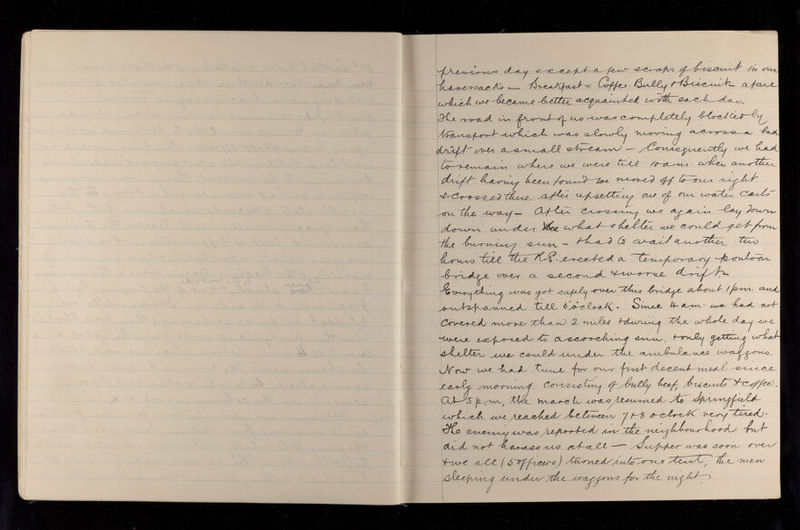 previous day except a few scraps of biscuit in our
haversacks — Breakfast = Coffee Bully & Biscuit — a fare
which we became better acquainted with each day.
The road in front of us was completely blocked by
transport which was slowly moving across a bad
drift over a small stream — Consequently we had
to remain where we were till 10 am. when another
drift having been found we moved off to our right
& crossed there after upsetting one of our water carts
on the way — After crossing we again lay down
down under what shelter we could get from
the burning sun — & had to await another two
hours till the R.E. erected a temporary pontoon
bridge over a second & worse drift —
Everything was got safely over this bridge about 1 pm. and
outspanned till 5 o'clock. Since 4 am we had not
covered more than 2 miles & during the whole day we
were exposed to a scorching sun, & only getting what
shelter we could under the ambulance waggons.
Now we had time for our first decent meal since
early morning consisting of bully beef, biscuits & coffee.
At 5 p.m, the march was resumed to Springfield
which we reached between 7 & 8 o'clock very tired.
The enemy was reported in the neighbourhood but
did not harass us at all — Supper was soon over
& we all (5 officers) turned into one tent, the men
sleeping under the waggons for the night.